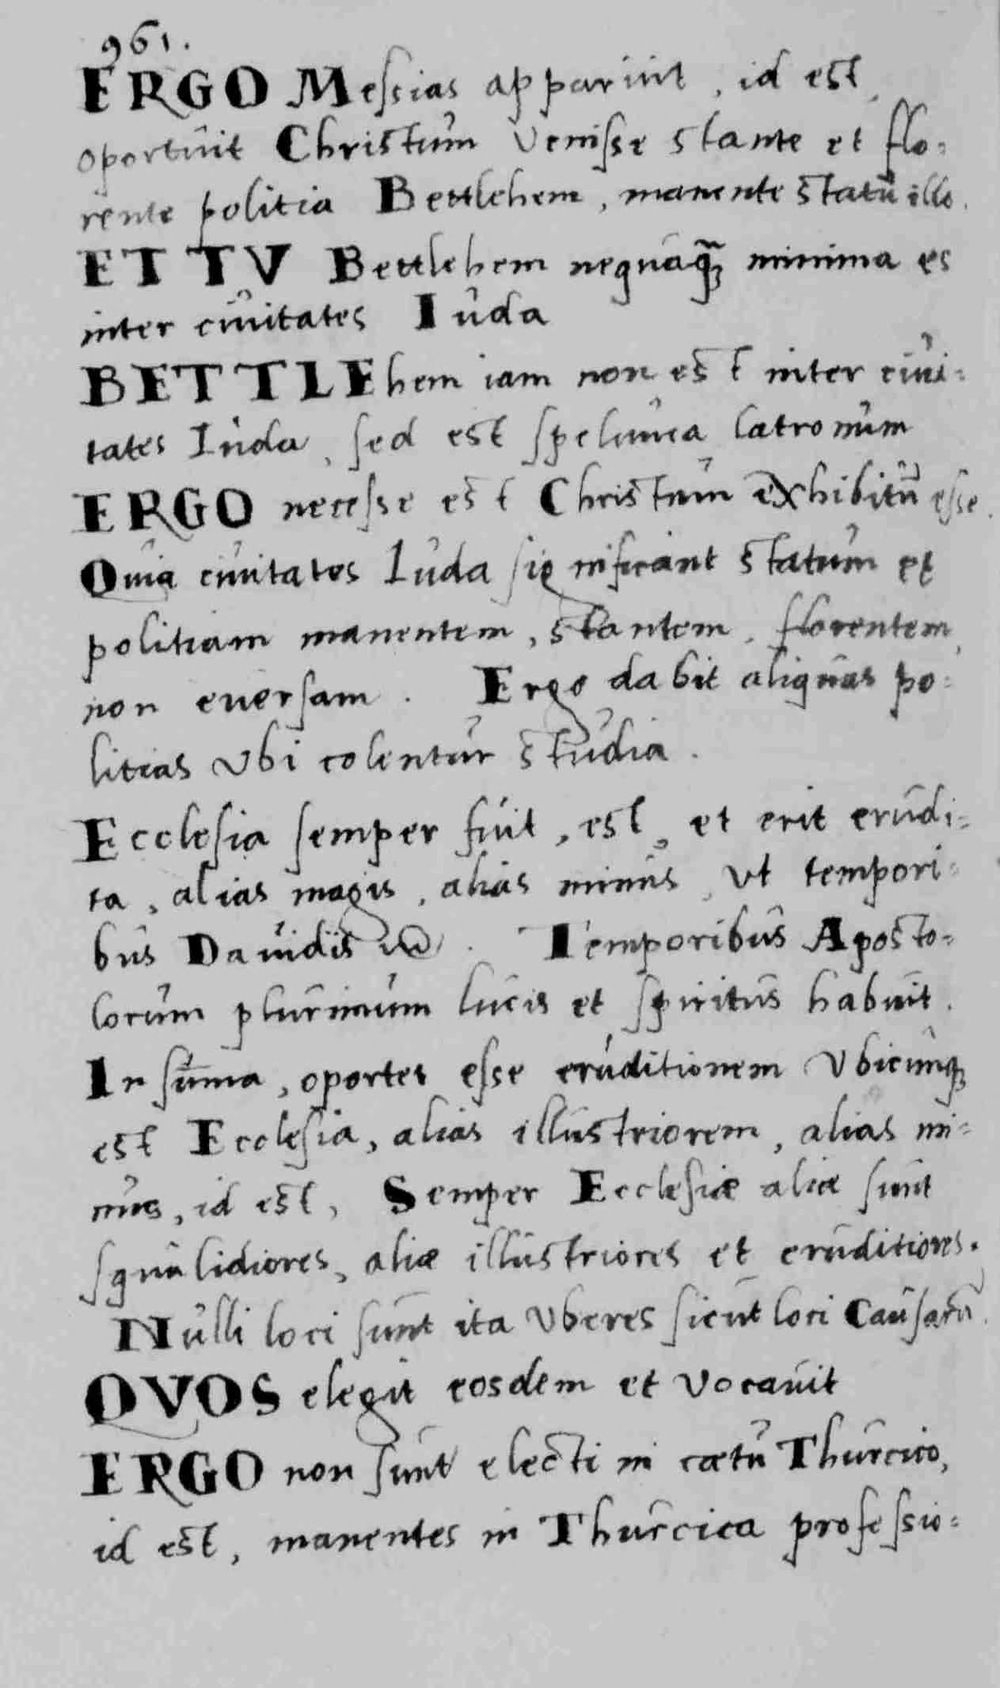 961.
ERGO Messias apparuit, id est,
oportuit Christum Venisse stante et flo=
rente politia Bettlehem, manente statu illo.
ET TV Bettlehem nequaq̃ꝫ minima es
inter ciuitates Iuda
BETTLEhem iam non est inter ciui=
tates Iuda, sed est spelunca latronum
ERGO necesse est Christum exhibitū esse.
Quia ciuitates Iuda significant statum et
politiam manentem, stantem, florentem,
non euersam. Ergo dabit aliquas po=
litias Vbi colentur studia.
Ecclesia semper fuit, est, et erit erudi=
ta, alias magis, alias minus, Vt tempori=
bus Dauidis. Temporibus Aposto=
lorum plurimum lucis et spiritus habuit.
In sum̄a, oportet esse eruditionem Vbicunqꝫ
est Ecclesia, alias illustriorem, alias mi=
nus, id est, Semper Ecclesiæ aliæ sunt
squalidiores, aliæ illustriores et eruditiores.
Nulli loci sunt ita Vberes sicut loci Causarū.
QVOS elegit eosdem et Vocauit
ERGO non sunt electi in cœtu Thurcico,
id est, manentes in Thurcica professio=